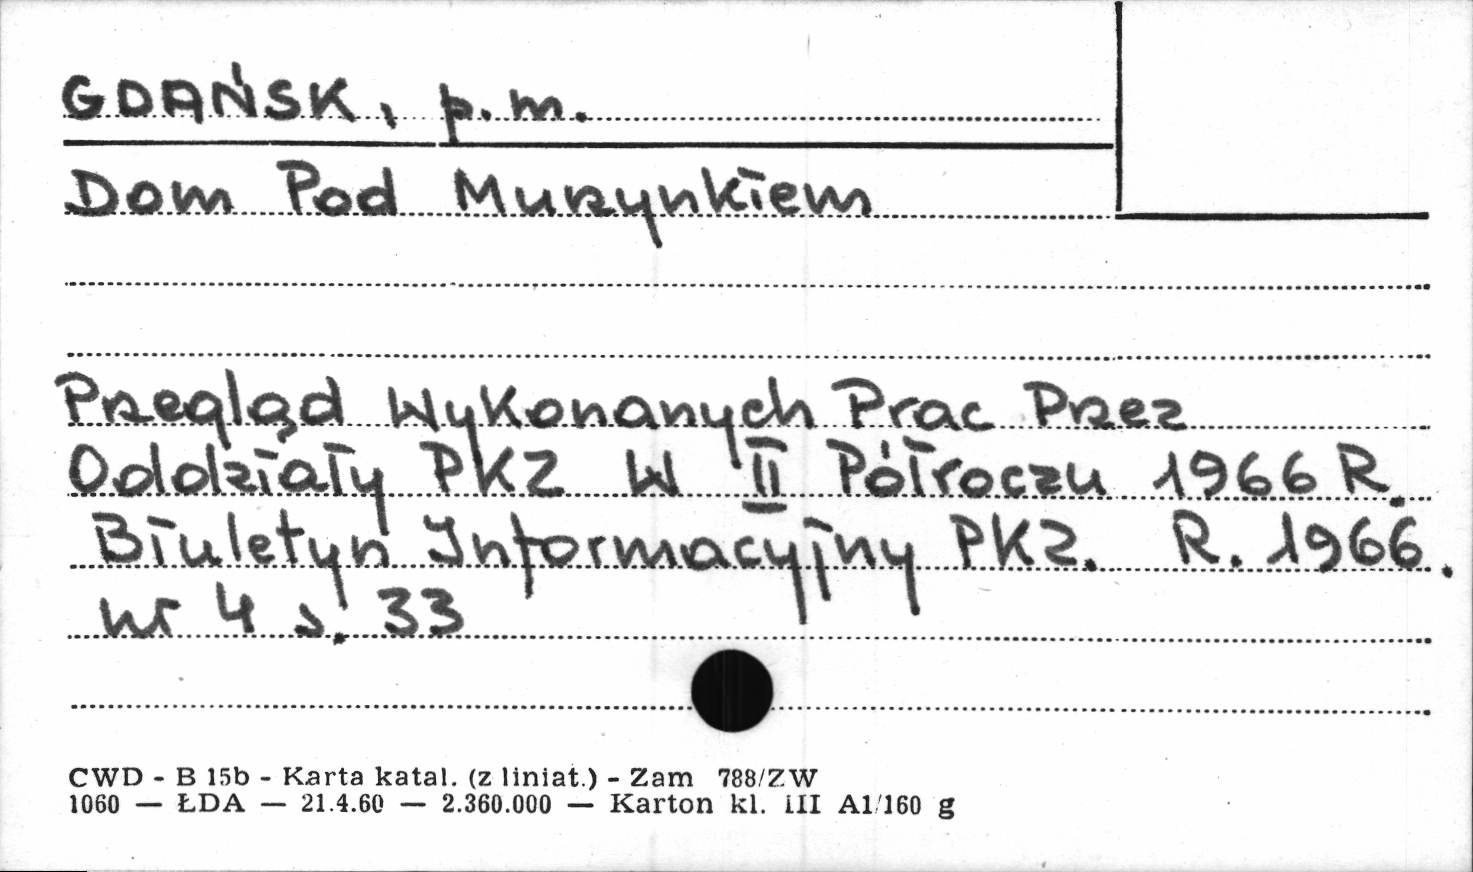 GDAŃSK, p.m.
Dom Pod Murzynkiem
Przegląd Wykonanych Prac Przez
Oddziały PKZ W II Półroczu 1966 R.
Biuletyn Informacyjny PKZ. R. 1966.
nr 4 s. 33
CWD - B 15b - Karta katal. (z liniat.) - Zam 788/ZW
1060 — ŁDA — 21.4.60 — 2.360.000 — Karton kl. III A1/160 g